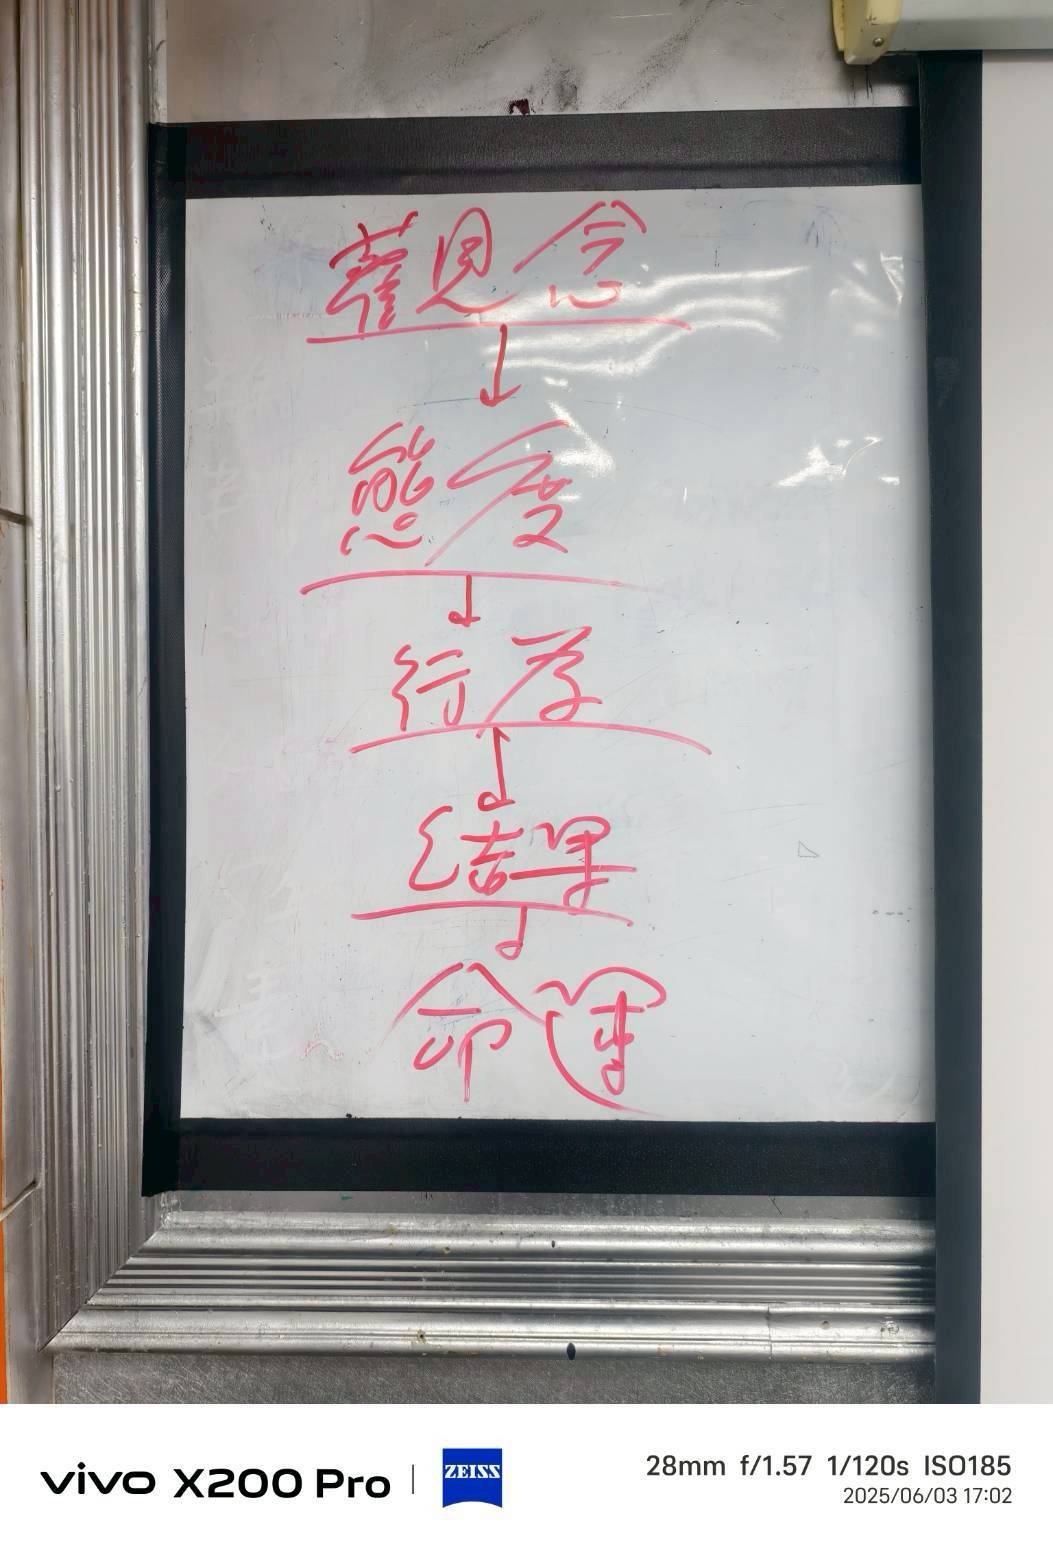 觀念
↓
態度
↓
行為
↕
結果
↓
命運
vivo X200 Pro | ZEISS 28mm f/1.57 1/120s ISO185
2025/06/03 17:02